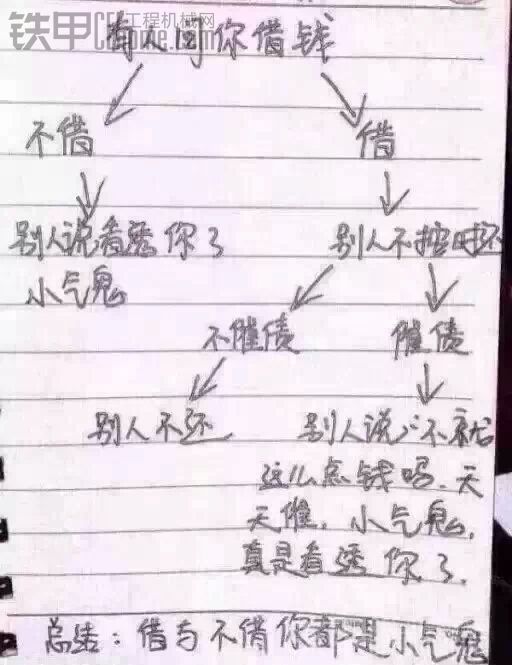 铁甲 工程机械网
有人问你借钱
不借 借
别人说看透你了 别人不按时还
小气鬼
不催债 催债
别人不还 别人说:不就
这么点钱吗,天
天催,小气鬼,
真是看透你了.
总结:借与不借你都是小气鬼